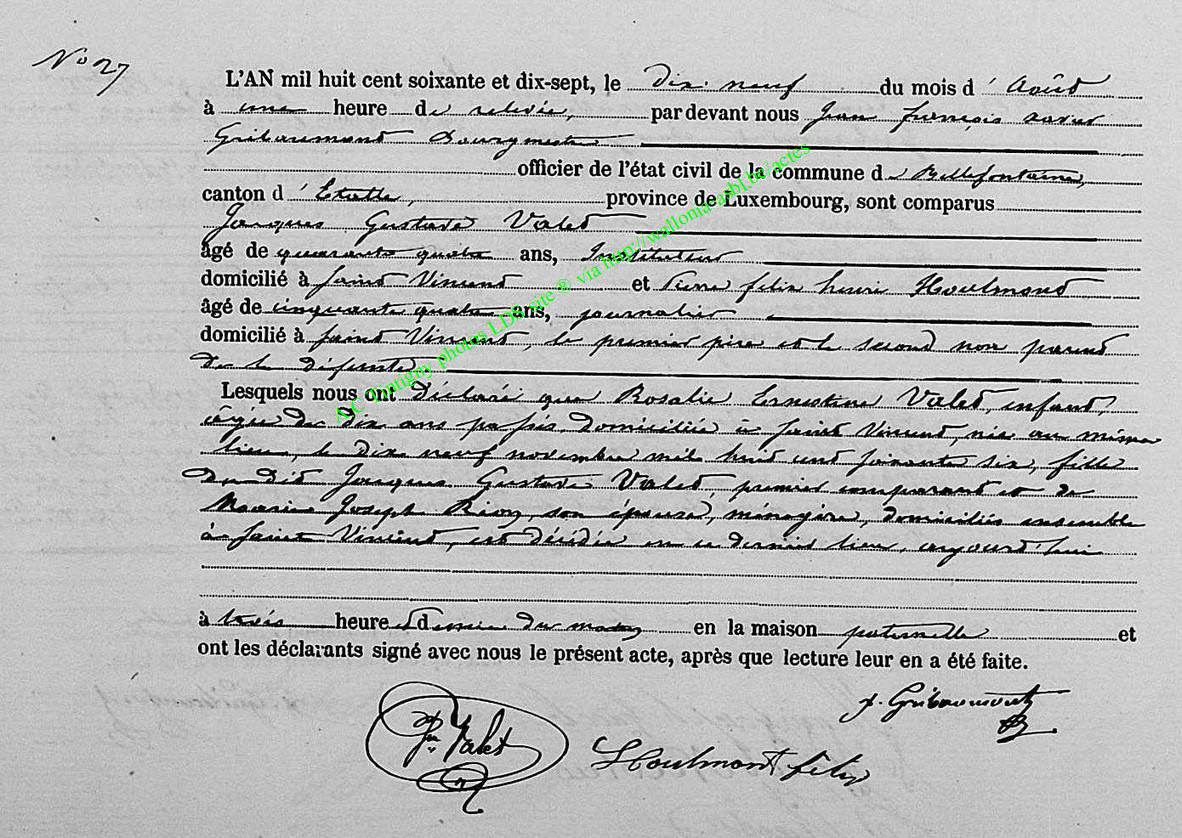 N° 27
L'AN mil huit cent soixante et dix-sept, le dix neuf du mois d'Août
à une heure de relevée, par devant nous Jean françois xavier
Gribaumont Bourgmestre
officier de l'état civil de la commune d e Bellefontaine,
canton d'Etalle, province de Luxembourg, sont comparus
Jacques Gustave Valet
âgé de quarante quatre ans, Instituteur
domicilié à Saint Vincent et Pierre felix henri Houlmont
âgé de cinquante quatre ans, journalier
domicilié à Saint Vincent, le premier père et le second non parent
de la défunte
Lesquels nous ont déclaré que Rosalie Ernestine Valet, enfant,
âgée de dix ans passés, domiciliée à Saint Vincent, née au même
lieu, le dix neuf novembre mil huit cent soixante six, fille
du dit Jacques Gustave Valet, premier comparant et de
Marie Joseph son épouse, ménagère, domiciliés ensemble
à Saint Vincent, est décédée en ce dernier lieu, aujourd'hui
à trois heure et demie du matin en la maison paternelle et
ont les déclarants signé avec nous le présent acte, après que lecture leur en a été faite.
J. Gribaumont
Valet
Houlmont félix
photos LDB site ® via http://walloma-asbl.be/actes